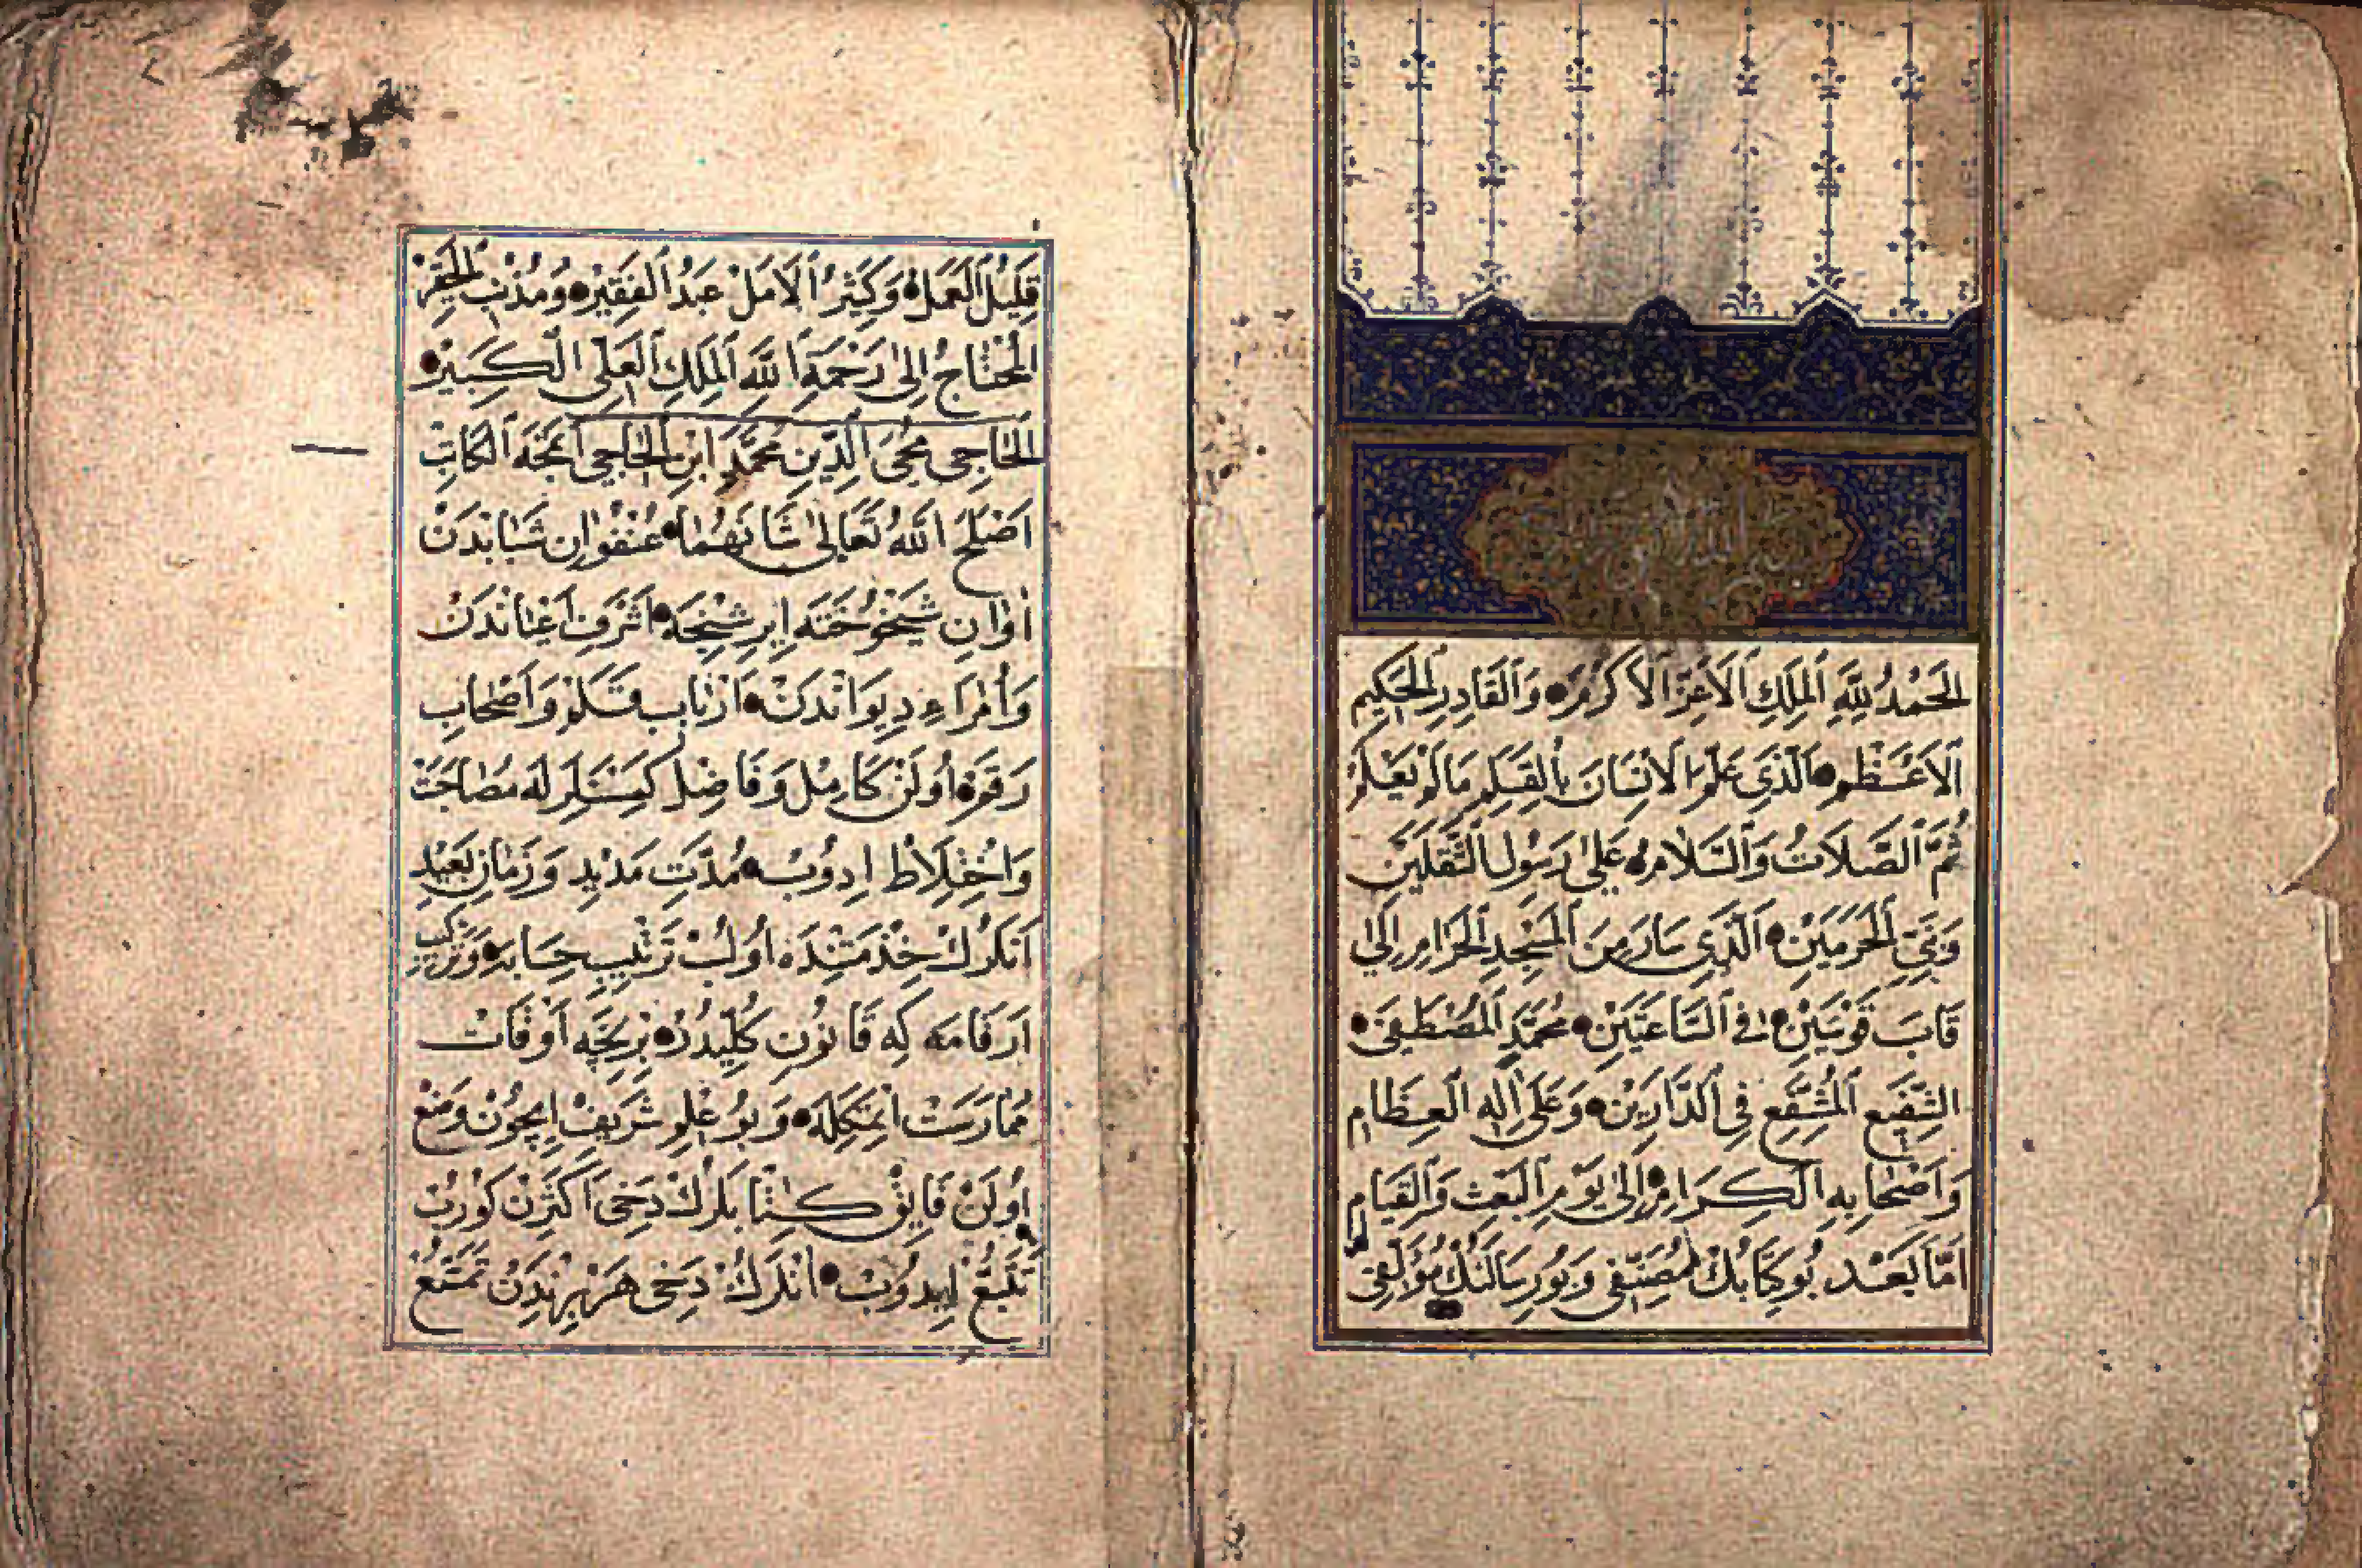 الْحَمْدُ لِلَّهِ الْمَلِكِ الْأَعَزِّ الْأَكْرَمِ وَالْقَادِرِ الْحَكِيمِ
الْأَعْظَمِ الَّذِي عَلَّمَ الْإِنْسَانَ بِالْقَلَمِ مَا لَمْ يَعْلَمْ
ثُمَّ الصَّلَاتُ وَالسَّلَامُ عَلَى رَسُولِ الثَّقَلَيْنِ
وَنَبِيِّ الْحَرَمَيْنِ الَّذِي سَارَ مِنَ الْمَسْجِدِ الْحَرَامِ إِلَى
قَابَ قَوْسَيْنِ فِي السَّاعَتَيْنِ مُحَمَّدٍ الْمُصْطَفَى
الشَّفِيعِ الْمُشَفَّعِ فِي الدَّارَيْنِ وَعَلَى آلِهِ الْعِظَامِ
وَأَصْحَابِهِ الْكِرَامِ إِلَى يَوْمِ الْبَعْثِ وَالْقِيَامِ
أَمَّا بَعْدُ بُو كِتَابُكْ مُصَنِّفِي وَبُو رِسَالَنُكْ مُؤَلِّفِي
قَلِيلُ الْعَمَلِ وَكَثِيرُ الْأَمَلْ عَبْدُ الْفَقِيرْ وَمُذْنِبُ الْحَقِيرْ
الْمُحْتَاجُ إِلَى رَحْمَةِ اللَّهِ الْمَلِكِ الْعَلِيِّ الْكَبِيرْ
الْحَاجِي مُحْيِي الدِّينِ مُحَمَّدٍ ابْنِ الْحَاجِي الْكَاتِبْ
أَصْلَحَ اللَّهُ تَعَالَى شَانَهُمَا عُنْفُوَانِ شَبَابْدَنْ
أَوَانِ شَيْخُوخَتَه إِيرِشِنْجَه أَشْرَفِ أَعْيَانْدَنْ
وَأُمَرَاءِ دِيوَانْدَنْ أَرْبَابِ قَلَمْ وَأَصْحَابِ
رَقَمْ أُولَنْ كَامِلْ وَفَاضِلْ كِمْسَنَلَرْلَه مُصَاحَبَتْ
وَاخْتِلَاطْ اِدُوبْ مُدَّتِ مَدِيدْ وَزَمَانِ بَعِيدْ
أَنْلَرُكْ خِذْمَتِنْدَه أُولُبْ تَرْتِيبِ حِسَابَه وَتَرْكِيبِ
أَرْقَامَه كِه قَانُونِ كُلِّيدُرْ بِرْنِجَه أَوْقَاتْ
مُمَارَسَتْ اِتْمَكِلَه وَبُو عِلْمِ شَرِيفْ اِيچُونْ وَضْعْ
أُولَنْ فَايِقْ كِتَابْلَرُكْ دَخِى أَكْثَرِنْ كُورُبْ
تَتَبُّعْ اِيدُوبْ أَنْلَرُكْ دَخِى هَرْ بِرِنْدَنْ تَمَتُّعْ